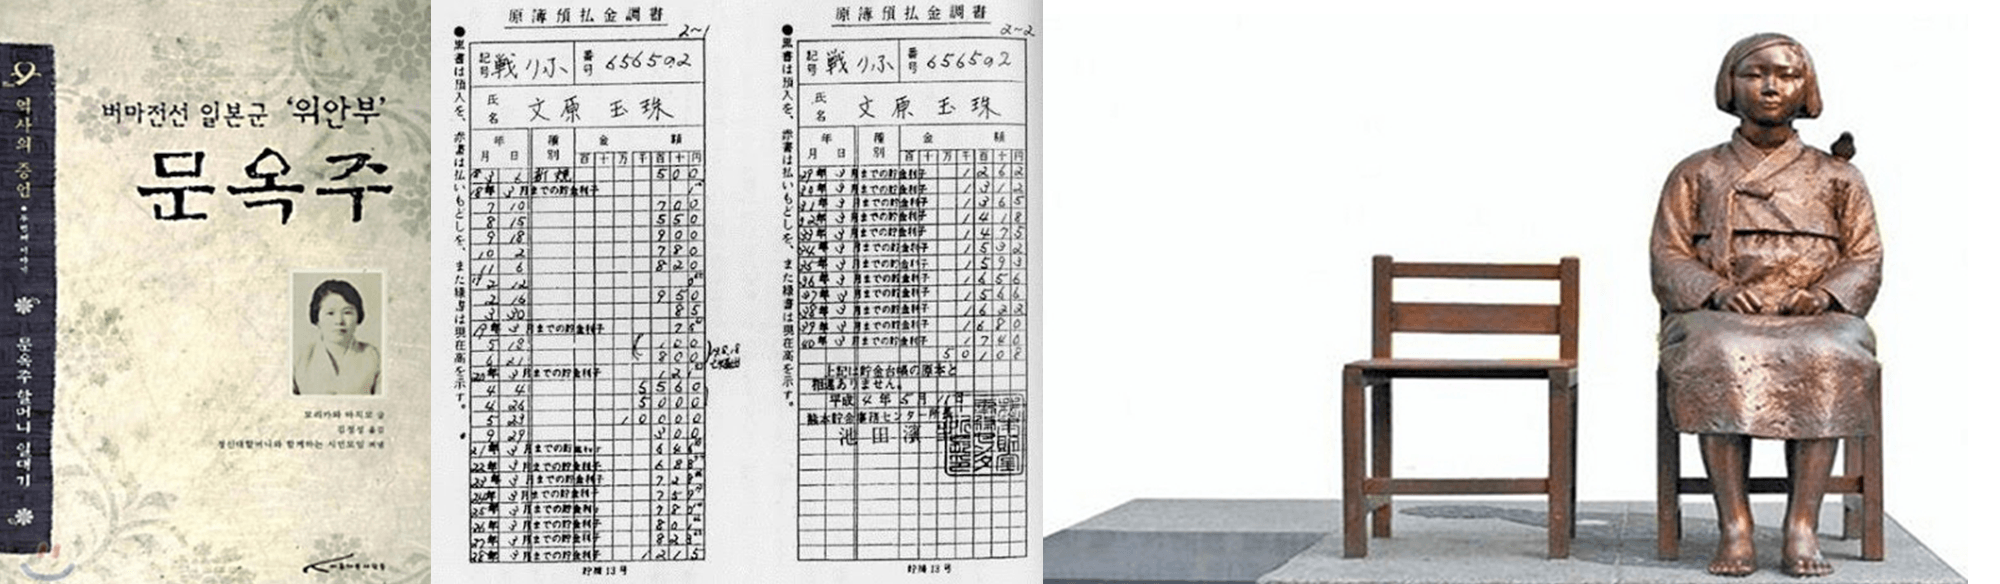 역사의 증언 • 두번째 이야기
문옥주 할머니 일대기
버마전선 일본군 '위안부'
문옥주
모리카와 마치코 글
김정성 옮김
정신대할머니와 함께하는 시민모임 펴냄
原簿預払金調書
2~1
●黒書は預入を、赤書は払いもどしを、また緑書は現在高を示す。
記号 戦りふ 番号 656502
氏名 文原 玉珠
年月日 種別 金額
百十万千百十円
18 3 6 新規 500
18年 3月までの貯金利子
7 10 700
8 15 550
9 18 900
10 2 780
11 6 820
2 12
2 16 950
3 30 85
19年 3月までの貯金利子 75
5 18 100
6 21 800
20年 3月までの貯金利子 121
4 4 5560
4 26 5000
5 23 10000
9 29 300
21年 3月までの貯
22年 3月までの貯金利子
23年 3月までの貯金利子
24年 3月までの貯金利子
25年 3月までの貯金利子
26年 3月までの貯金利子
27年 3月までの貯金利子
28年 3月までの貯金利子 1215
貯機13号
原簿預払金調書
2~2
●黒書は預入を、赤書は払いもどしを、また緑書は現在高を示す。
記号 戦りふ 番号 656502
氏名 文原 玉珠
年月日 種別 金額
百十万千百十円
29年 3月までの貯金利子 1262
30年 3月までの貯金利子 1312
31年 3月までの貯金利子 1365
32年 3月までの貯金利子 1418
33年 3月までの貯金利子 1475
34年 3月までの貯金利子 1532
35年 3月までの貯金利子 1593
36年 3月までの貯金利子 1656
37年 3月までの貯金利子 1566
38年 3月までの貯金利子 1622
39年 3月までの貯金利子 1680
40年 3月までの貯金利子 1740
50108
上記は貯金台帳の原本と
相違ありません。
平成4年5月11日
熊本貯金事務センター所長
池田
貯機13号